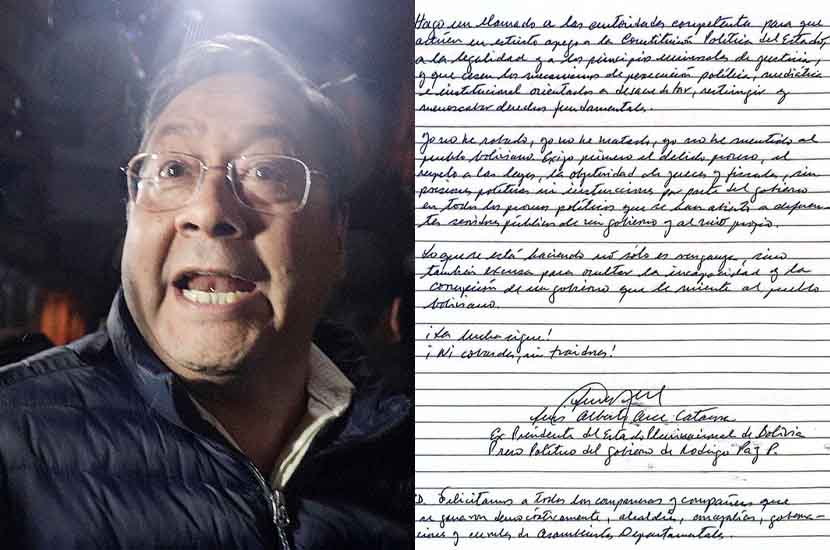 Hago un llamado a las autoridades competentes para que
actúen en estricto apego a la Constitución Política del Estado,
a la legalidad y a los principios universales de justicia,
y que cesen los mecanismos de persecución política, mediática
e institucional orientados a desacreditar, restringir y
menoscabar derechos fundamentales.
Yo no he robado, yo no he matado, yo no he mentido al
pueblo boliviano. Exijo primero el debido proceso, el
respeto a las leyes, la objetividad de jueces y fiscales, sin
presiones políticas ni instrucciones por parte del gobierno
en todos los procesos políticos que se han abierto a diferen-
tes servidores públicos de mi gobierno y al mío propio.
Lo que se está haciendo no sólo es venganza, sino
también excusa para ocultar la incapacidad y la
corrupción de un gobierno que le miente al pueblo
boliviano.
¡La lucha sigue!
¡Ni cobardes, ni traidores!
Luis Alberto Arce Catacora
Ex Presidente del Estado Plurinacional de Bolivia
Preso Político del gobierno de Rodrigo Paz P.
D. Felicitamos a todos los compañeros y compañeras que
se ganaron democráticamente, alcaldías, concejalías, goberna-
ciones y curules de Asambleístas Departamentales.